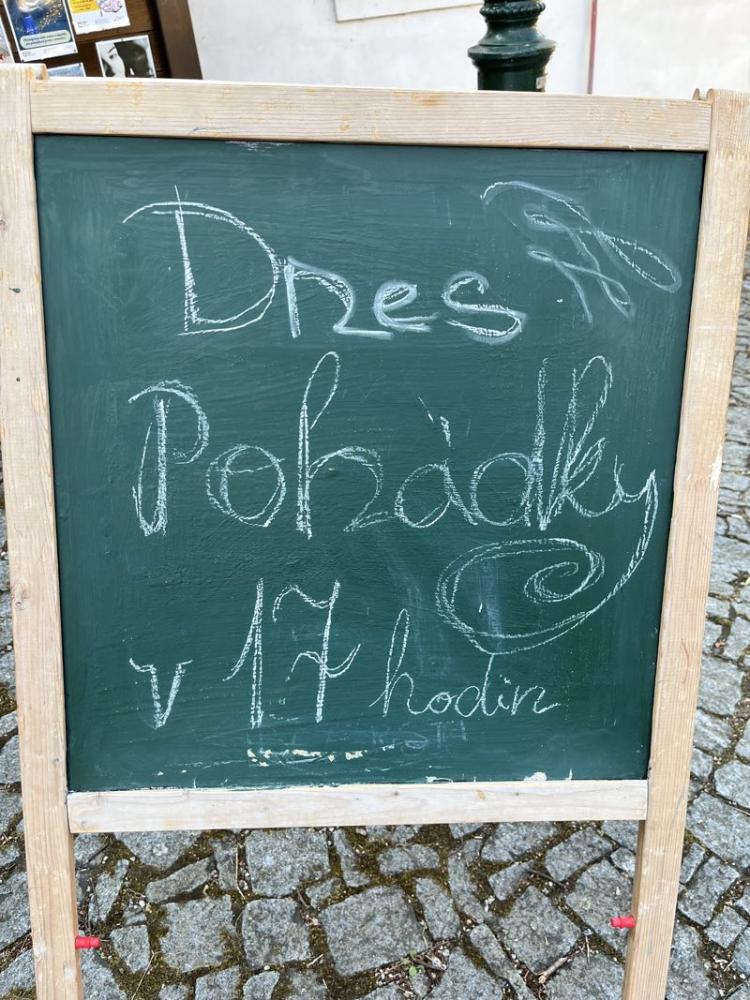 Dnes
Pohádky
v 17 hodin